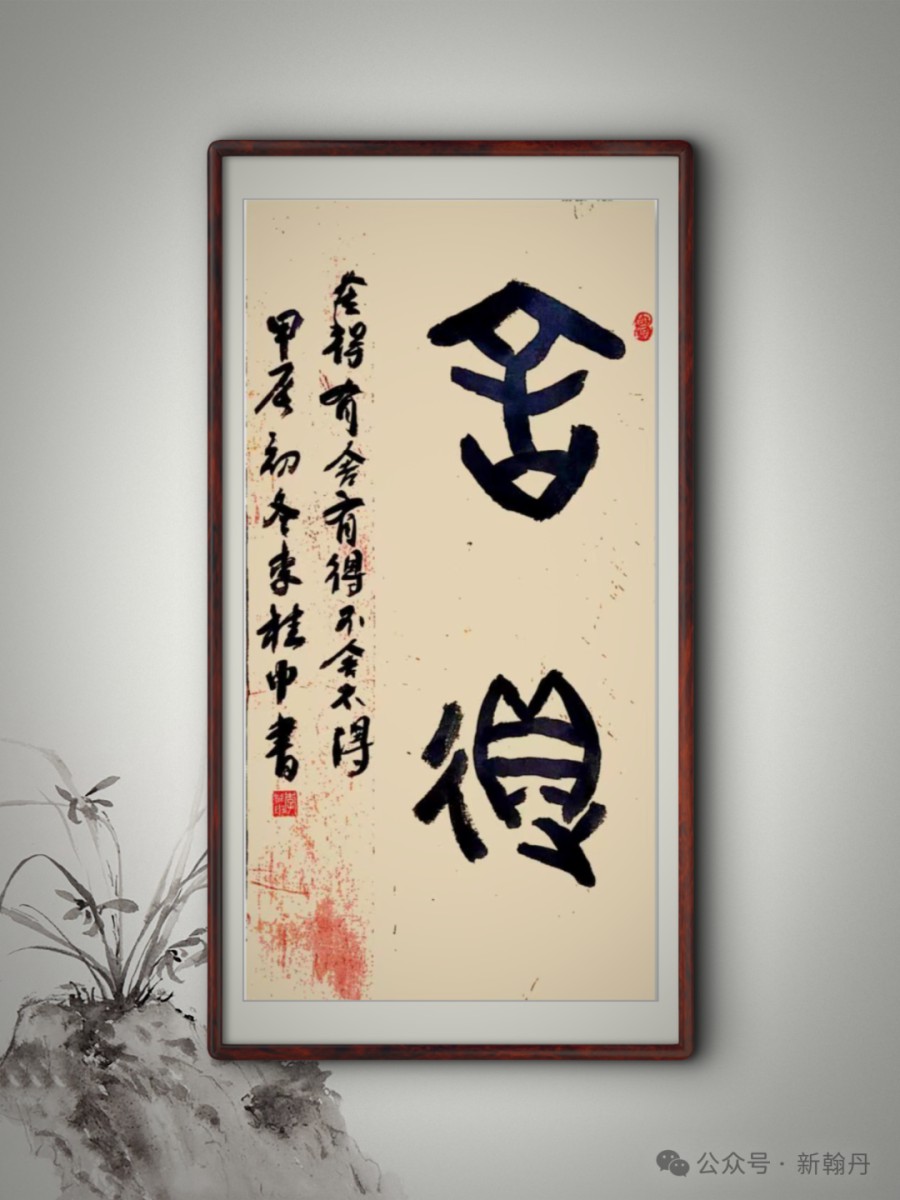 舍得
舍得有舍有得不舍不得
甲辰初冬李桂中书
公众号 · 新翰丹